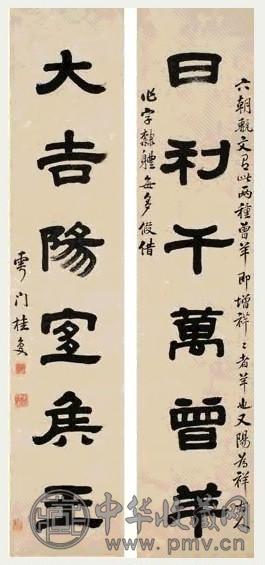 六朝甎文有此兩種曾羊即增祥〻者羊也又陽為祥
日利千萬曾羊
字隸體每多假借
大吉陽宜矦王
雩門桂复
中华收藏网
www.pmv.cn